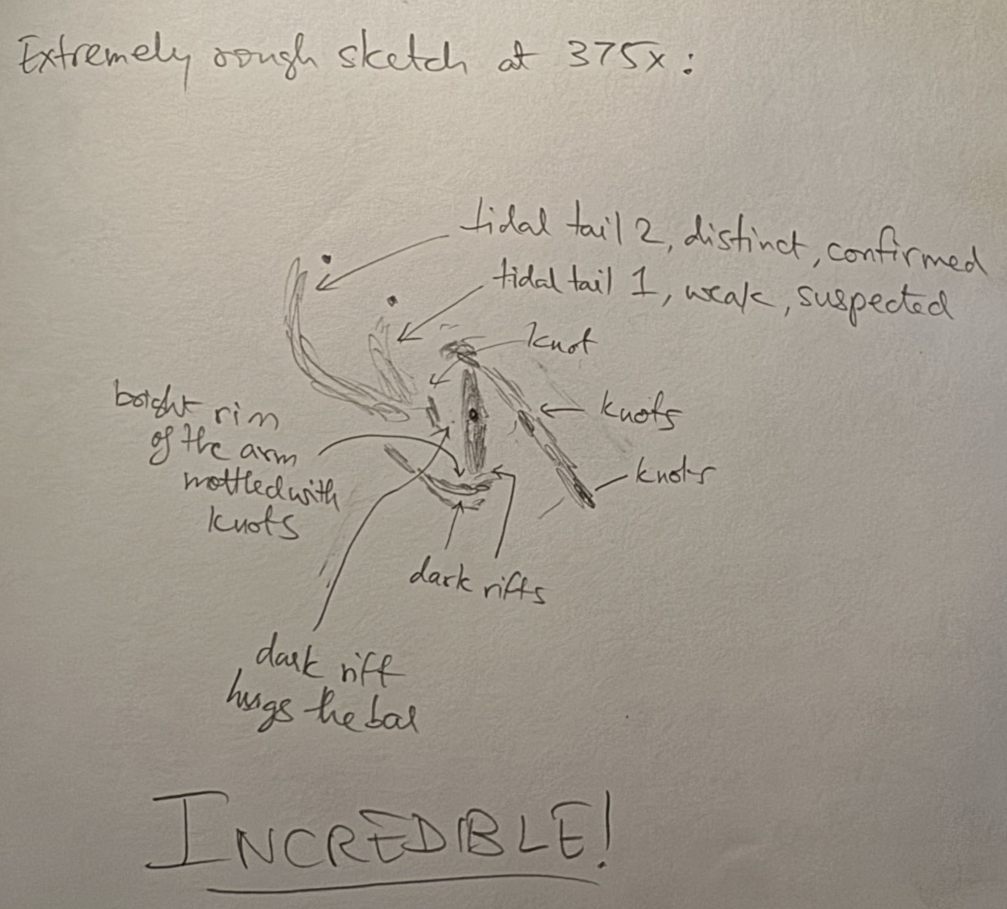 Extremely rough sketch at 375x:
tidal tail 2, distinct, confirmed
tidal tail 1, weak, suspected
knot
knots
knots
bright rim
of the arm
mottled with
knots
dark rifts
dark riff
hugs the bar
INCREDIBLE!